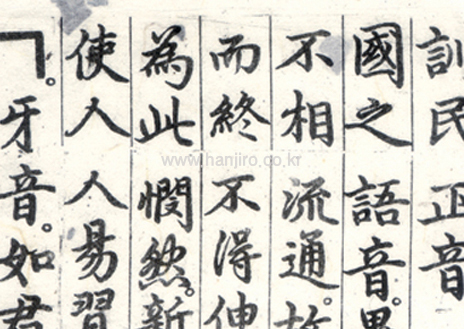 訓民正音
國之語音。異
不相流通。故
而終不得伸
為此憫然。新
使人人易習
ㄱ。牙音。如君
www.hanjiro.co.kr